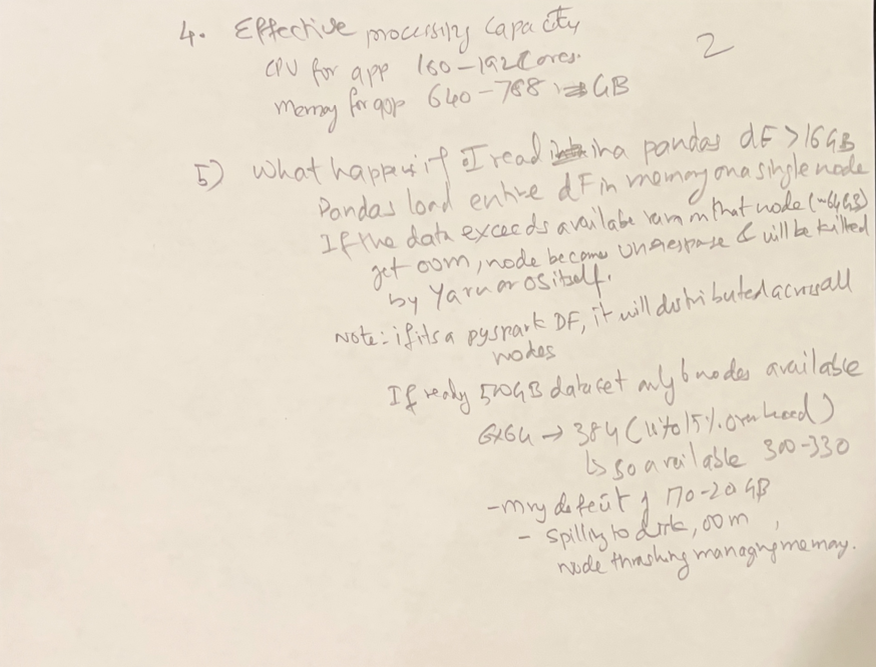 2
4. Effective processing capacity
CPU for app 160-192 Cores.
Memory for app 640-768 GB
5) What happens if I read in a pandas dF > 16GB
Pandas load entire dF in memory on a single node
If the data exceeds available ram on that node (~64GB)
get oom, node become unrespase & will be killed
by Yarn or OS itself.
Note: if its a pyspark DF, it will distributed across all
nodes
If ready 500GB dataset only 6 nodes available
6x64 → 384 ( to 15% overhead)
↳ so available 300-330
- mry deficit of 170-20 GB
- spilling to disk, oom,
node thrashing managing memory.